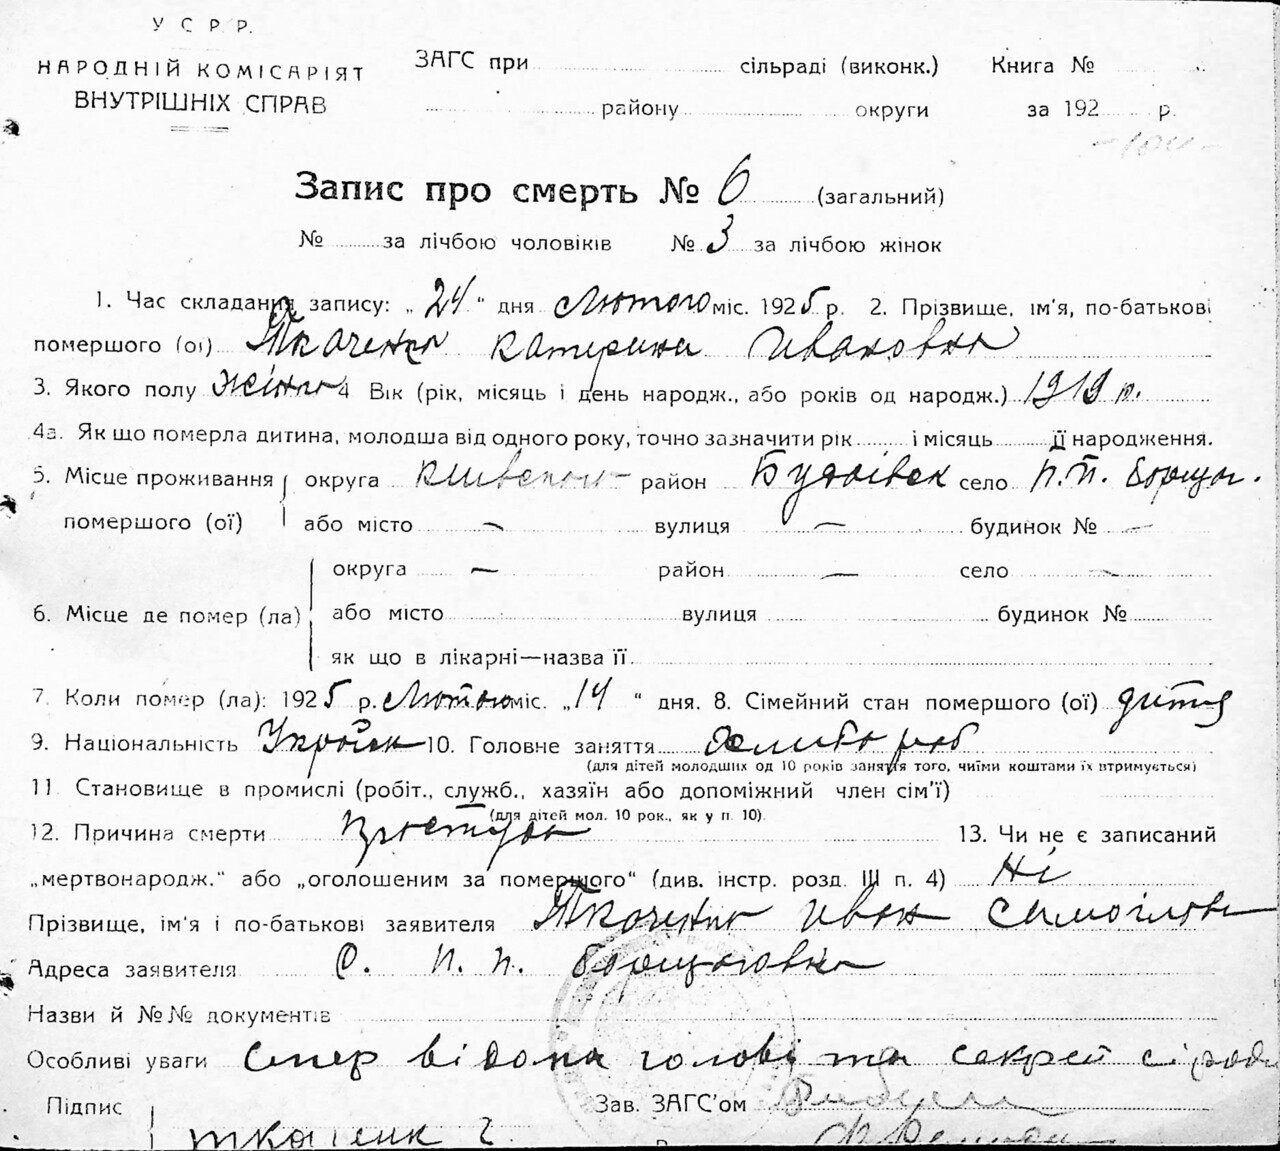 У С Р Р.
НАРОДНІЙ КОМІСАРІЯТ
ВНУТРІШНІХ СПРАВ
ЗАГС при сільраді (виконк.) Книга №
району округи за 192 р.
Запис про смерть № 6 (загальний)
№ за лічбою чоловіків № 3 за лічбою жінок
1. Час складання запису: „24“ дня Лютого міс. 1925 р. 2. Прізвище, ім'я, по-батькові
помершого (ої) Ткаченко Катерина Ивановна
3. Якого полу жіноч 4 Вік (рік, місяць і день народж., або років од народж.) 1919 р.
4а. Як що померла дитина, молодша від одного року, точно зазначити рік і місяць її народження.
5. Місце проживання округа район Будаівск село П.П. Борщаг.
помершого (ої) або місто — вулиця — будинок № —
округа — район — село —
6. Місце де помер (ла) або місто вулиця будинок №
як що в лікарні—назва її
7. Коли помер (ла): 1925 р. Лютого міс. „14“ дня. 8. Сімейний стан помершого (ої) дитя
9. Національність 10. Головне заняття
(для дітей молодших од 10 років заняття того, чиїми коштами їх втримується)
11 Становище в промислі (робіт., служб., хазяїн або допоміжний член сім'ї)
(для дітей мол. 10 рок., як у п. 10).
12. Причина смерти простуда 13. Чи не є записаний
„мертвонародж.“ або „оголошеним за помершого“ (див. інстр. розд. III п. 4) Ні
Прізвище, ім'я і по-батькові заявителя Ткаченко Иван Самоілов
Адреса заявителя С. П. П. Борщаговка
Назви й №№ документів
Особливі уваги відома голові та секрет
Підпис Зав. ЗАГС'ом